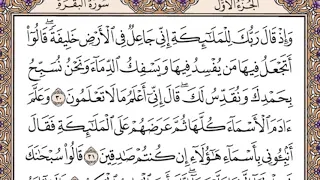 الجزء الأول سورة البقرة
وَإِذْ قَالَ رَبُّكَ لِلْمَلَٰٓئِكَةِ إِنِّي جَاعِلٌ فِي ٱلْأَرْضِ خَلِيفَةً ۖ قَالُوٓا۟
أَتَجْعَلُ فِيهَا مَن يُفْسِدُ فِيهَا وَيَسْفِكُ ٱلدِّمَآءَ وَنَحْنُ نُسَبِّحُ
بِحَمْدِكَ وَنُقَدِّسُ لَكَ ۖ قَالَ إِنِّيٓ أَعْلَمُ مَا لَا تَعْلَمُونَ ٣٠ وَعَلَّمَ
ءَادَمَ ٱلْأَسْمَآءَ كُلَّهَا ثُمَّ عَرَضَهُمْ عَلَى ٱلْمَلَٰٓئِكَةِ فَقَالَ
أَنۢبِـُٔونِي بِأَسْمَآءِ هَٰٓؤُلَآءِ إِن كُنتُمْ صَٰدِقِينَ ٣١ قَالُوا۟ سُبْحَٰنَكَ